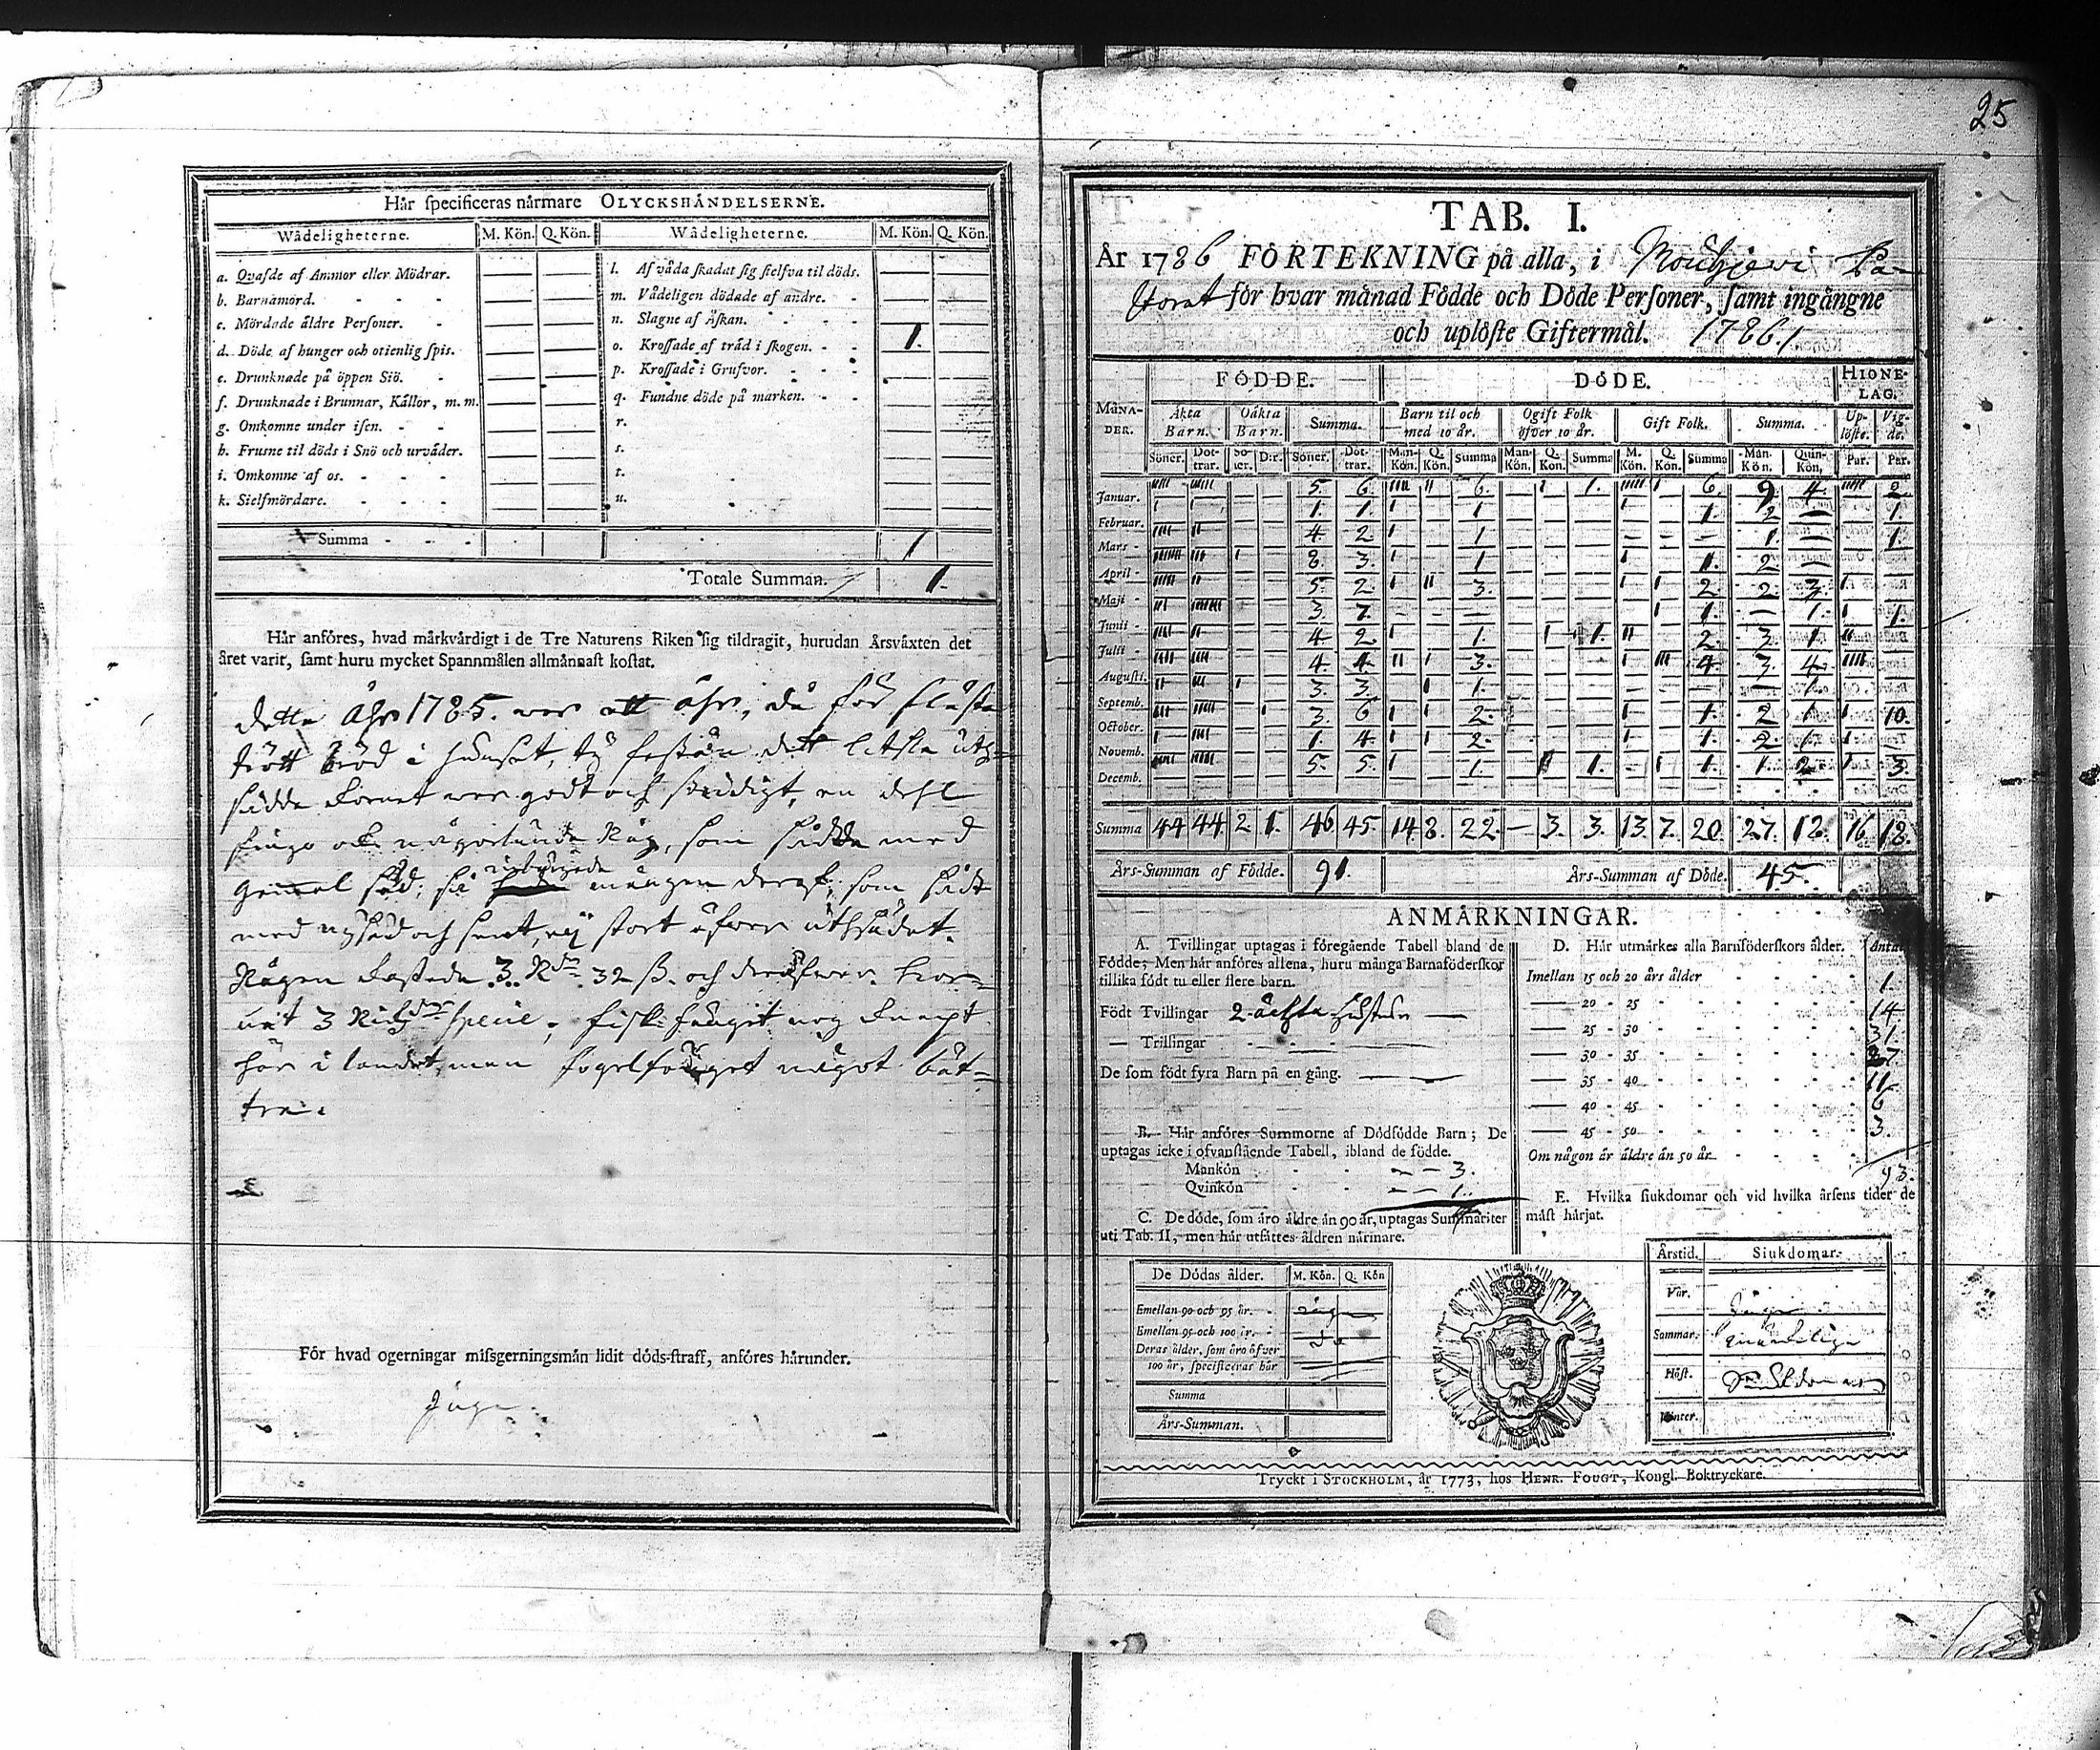 Här specificeras närmare OLYCKSHÄNDELSERNE.
Wådeligheterne. M. Kön. Q. Kön. Wådeligheterne. M. Kön. Q. Kön.
a. Qvafde af Ammor eller Mödrar. — — l. Af våda skadat sig sielfva til döds. — —
b. Barnamord. — — m. Vådeligen dödade af andre. — —
c. Mördade äldre Personer. — — n. Slagne af Åskan. — —
d. Döde af hunger och otienlig spis. — — o. Krossade af träd i skogen. 1. —
e. Drunknade på öppen Siö. — — p. Krossade i Grufvor. — —
f. Drunknade i Brunnar, Källor, m. m. — — q. Fundne döde på marken. — —
g. Omkomne under isen. — — r. — —
h. Frusne til döds i Snö och urväder. — — s. — —
i. Omkomne af os. — — t. — —
k. Sielfmördare. — — u. — —
Summa 1
Totale Summan. 1.
Här anföres, hvad märkvärdigt i de Tre Naturens Riken sig tildragit, hurudan Årsväxten det
året varit, samt huru mycket Spannmålen allmännast kostat.
detta åhr 1785. war ett åhr, då
tröt bröd i huuset, ty det uth-
sådde kornet war godt och en dehl
som sådde med
gammal såd; så mången deraf, som sådt
med nysåd och sent, ej stort öfwer uthsädet.
Rågen kostade 3 Rdr 32 ß. och deröfwer. Kor-
net 3 Riksdr specie; fisk fånget nog knapt
här i landet, men fogelfånget något bät-
tre.
För hvad ogerningar missgerningsmän lidit döds-straff, anföres härunder.
Inga
25
TAB. I.
År 1786 FÖRTEKNING på alla, i Pa-
storat för hvar månad Födde och Döde Personer, samt ingångne
och uplöste Giftermål. 1786.
MÅNADER. FÖDDE. DÖDE. HIONELAG.
Äkta Barn. Oäkta Barn. Summa. Barn til och med 10 år. Ogift Folk öfver 10 år. Gift Folk. Summa. Uplöste. Vigde.
Söner. Döttrar. Söner. D:r. Söner. Döttrar. Man-Kön. Q. Kön. Summa Man-Kön. Q. Kön. Summa M. Kön. Q. Kön. Summa Man-Kön. Quin-Kön. Par. Par.
Januar. 5. 6. 6. 1. 6. 9. 4. 2.
Februar. 1. 1. 1 1. 2 — 1.
Mars 4 2 1 — 1. — 1.
April 8. 3. 1 1. 2 —
Maji 5. 2 3. 2 2. 3.
Junii 3. 7. — 1. — 1. 1.
Julii 4 2 1. 1. 2 3. 1.
Augusti. 4. 4 3. 4. 3. 4.
Septemb. 3. 3. 1. — 1.
October. 3. 6 2. 1. 2 1 10.
Novemb. 1. 4. 2. 1. 2. 1
Decemb. 5. 5. 1. 1. 1. 1. 2. 3.
Summa 44 44 2 1. 46 45. 14 8. 22. — 3. 3. 13. 7. 20. 27. 18. 16 18.
Års-Summan af Födde. 91. Års-Summan af Döde. 45.
ANMÄRKNINGAR.
A. Tvillingar uptagas i föregående Tabell bland de
Födde; Men här anföres allena, huru många Barnaföderskor
tillika födt tu eller flere barn.
Födt Tvillingar 2 ächta hustrur —
— Trillingar —
De som födt fyra Barn på en gång. —
B. Här anföres Summorne af Dödfödde Barn; De
uptagas icke i ofvanstående Tabell, ibland de födde.
Mankön 3.
Qvinkön 1.
4
C. De döde, som äro äldre än 90 år, uptagas Summariter
uti Tab. II, men här utsättes åldren närmare.
De Dödas ålder. M. Kön. Q. Kön
Emellan 90 och 95 år. inga
Emellan 95 och 100 år.
Deras ålder, som äro öfver
100 år, specificeras här
Summa
Års-Summan.
D. Här utmärkes alla Barnföderskors ålder. Antal
Imellan 15 och 20 års ålder 1.
— 20 - 25 14
— 25 - 30 31.
— 30 - 35
— 35 - 40 11
— 40 - 45 6
— 45 - 50 3.
Om någon är äldre än 50 år
93.
E. Hvilka siukdomar och vid hvilka årsens tider de
mäst härjat.
Årstid. Siukdomar.
Vår. Inga
Sommar. märkelige
Höst. Siukdomar
Winter.
Tryckt i STOCKHOLM, år 1773, hos HENR. FOUGT, Kongl. Boktryckare.